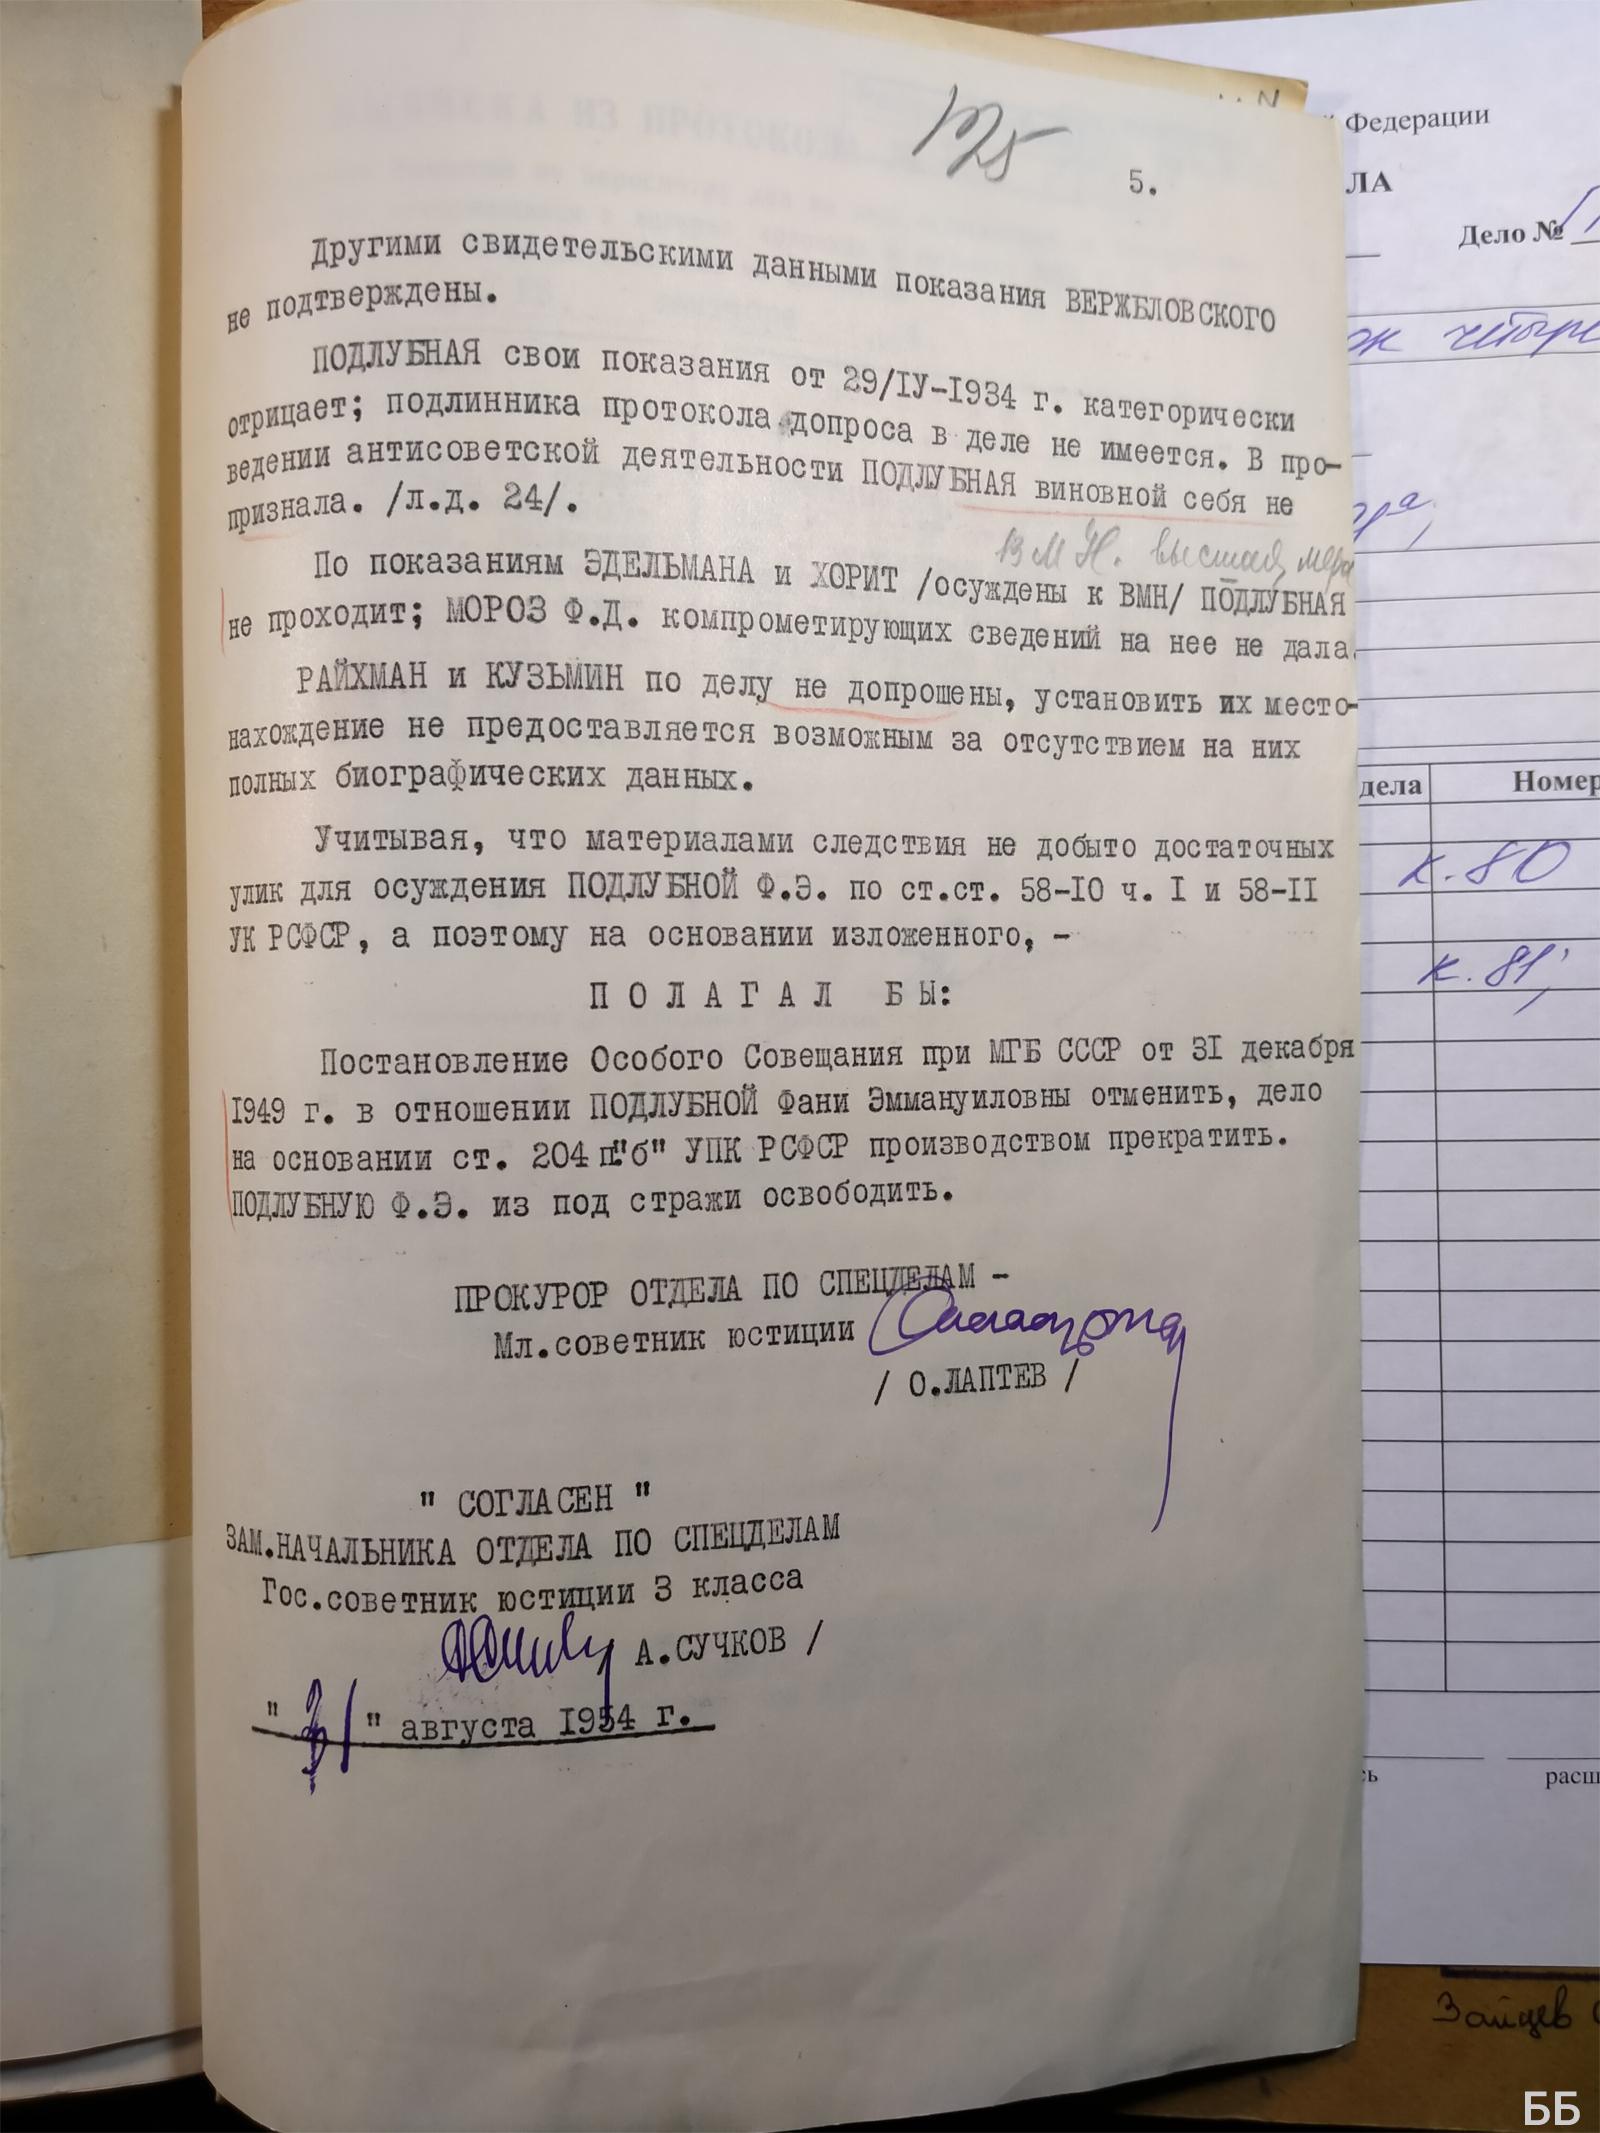 125
5.
Другими свидетельскими данными показания ВЕРЖБЛОВСКОГО
не подтверждены.
ПОДЛУБНАЯ свои показания от 29/IУ-1934 г. категорически
отрицает; подлинника протокола допроса в деле не имеется. В про-
ведении антисоветской деятельности ПОДЛУБНАЯ виновной себя не
признала. /л.д. 24/.
ВМН. высшая мера
По показаниям ЭДЕЛЬМАНА и ХОРИТ /осуждены к ВМН/ ПОДЛУБНАЯ
не проходит; МОРОЗ Ф.Д. компрометирующих сведений на нее не дала.
РАЙХМАН и КУЗЬМИН по делу не допрошены, установить их место-
нахождение не предоставляется возможным за отсутствием на них
полных биографических данных.
Учитывая, что материалами следствия не добыто достаточных
улик для осуждения ПОДЛУБНОЙ Ф.Э. по ст.ст. 58-10 ч. I и 58-II
УК РСФСР, а поэтому на основании изложенного, -
П О Л А Г А Л Б Ы:
Постановление Особого Совещания при МГБ СССР от 31 декабря
1949 г. в отношении ПОДЛУБНОЙ Фани Эммануиловны отменить, дело
на основании ст. 204 п."б" УПК РСФСР производством прекратить.
ПОДЛУБНУЮ Ф.Э. из под стражи освободить.
ПРОКУРОР ОТДЕЛА ПО СПЕЦДЕЛАМ -
Мл.советник юстиции
/ О.ЛАПТЕВ /
" СОГЛАСЕН "
ЗАМ.НАЧАЛЬНИКА ОТДЕЛА ПО СПЕЦДЕЛАМ
Гос.советник юстиции 3 класса
/ А.СУЧКОВ /
" 31 " августа 1954 г.
Федерации
ЛА
Дело №
дела Номер
к. 80
к. 81,
расш
Зайцев
ББ